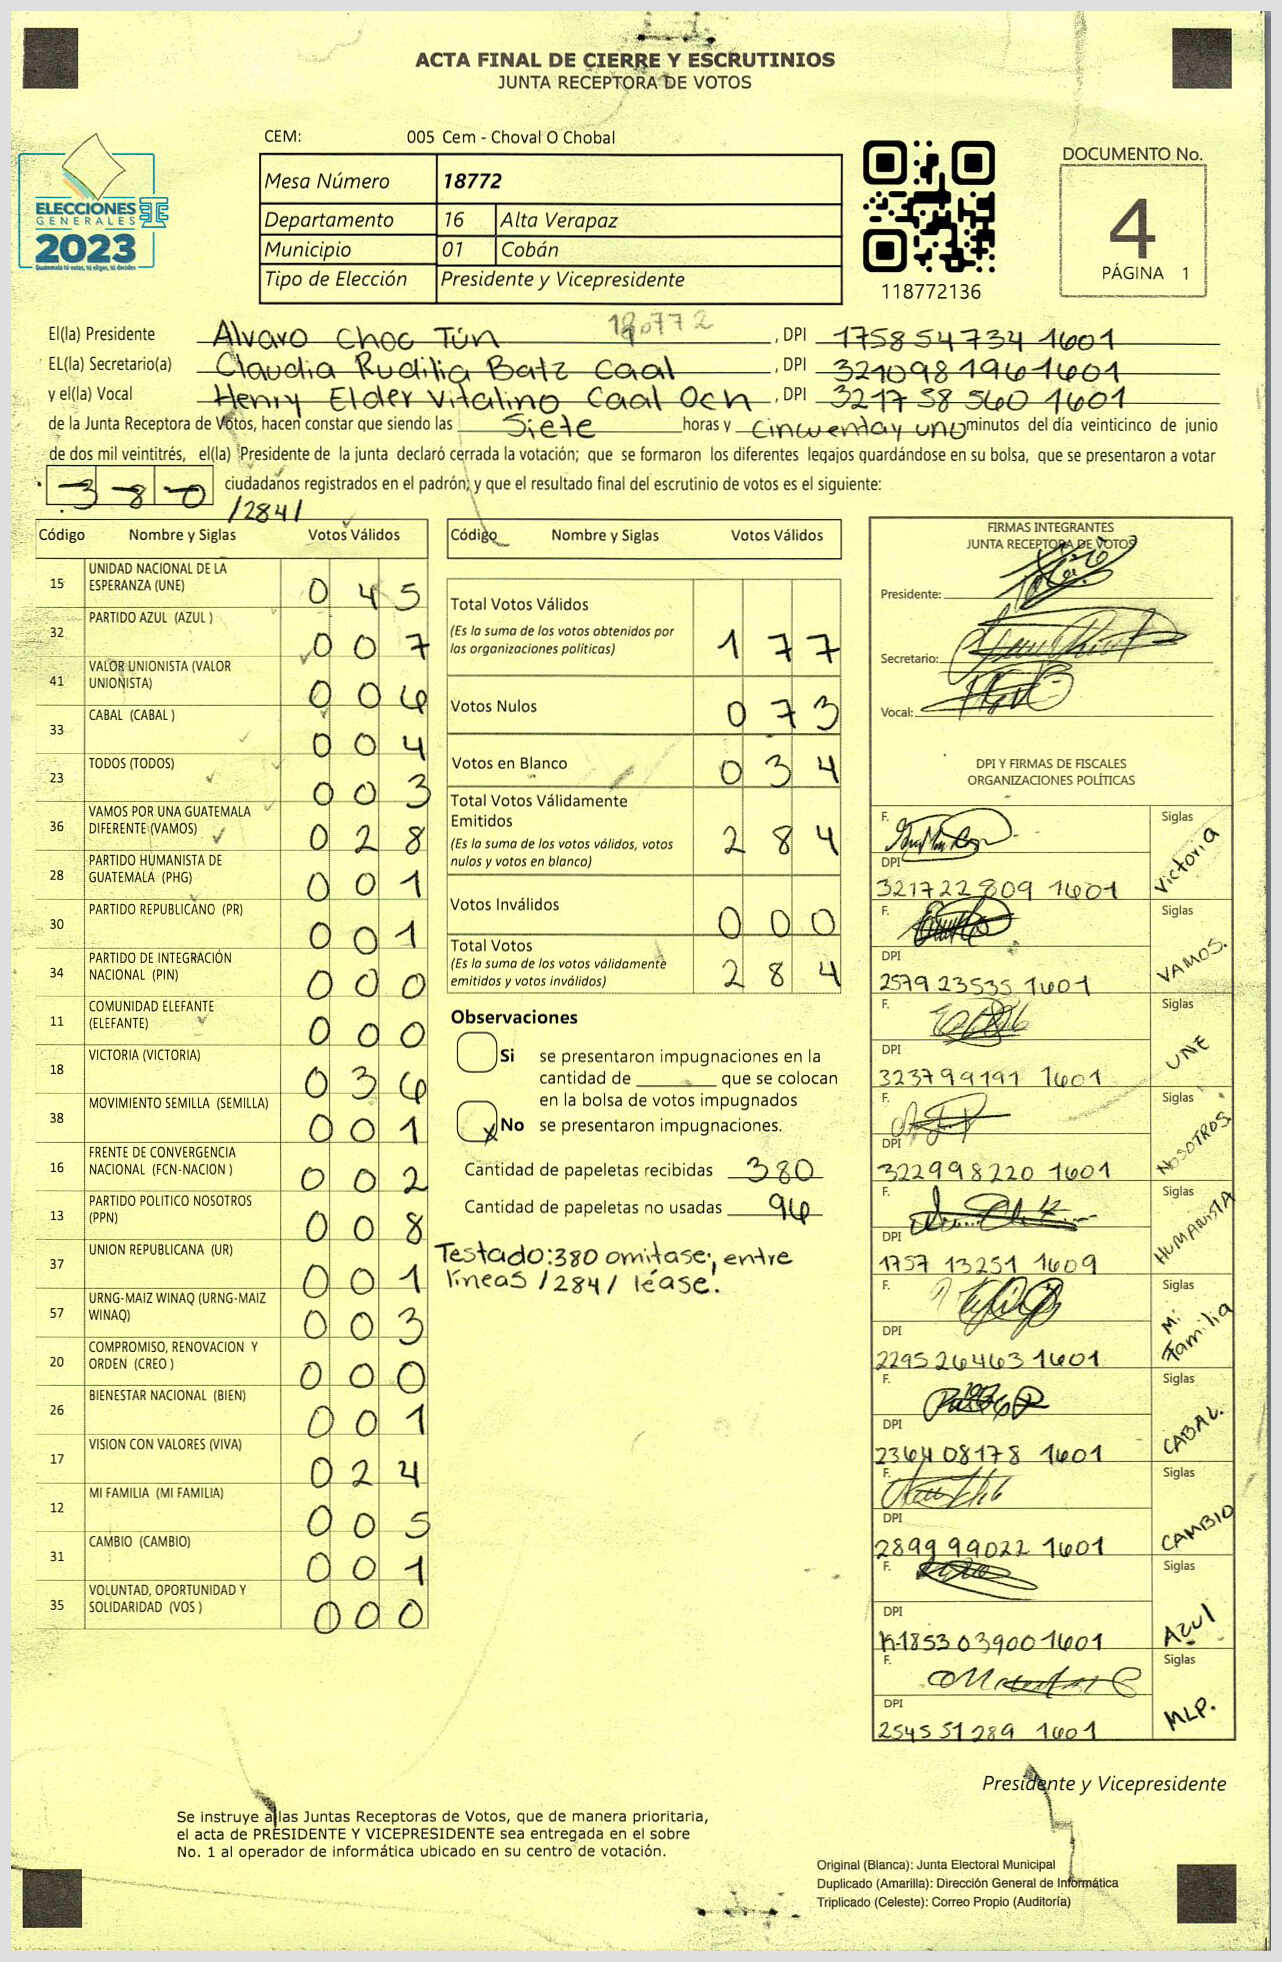 ACTA FINAL DE CIERRE Y ESCRUTINIOS
JUNTA RECEPTORA DE VOTOS
CEM: 005 Cem - Choval O Chobal
Mesa Número 18772
Departamento 16 Alta Verapaz
Municipio 01 Cobán
Tipo de Elección Presidente y Vicepresidente
ELECCIONES
GENERALES
2023
Guatemala tú votas, tú eliges, tú decides
118772136
DOCUMENTO No.
4
PÁGINA 1
El(la) Presidente Alvaro Choc Tún , DPI 1758 54734 1601
EL(la) Secretario(a) Claudia Rudilia Batz Caal , DPI 321098196 1601
y el(la) Vocal Henry Elder Vitalino Caal Och , DPI 3217 58 560 1601
de la Junta Receptora de Votos, hacen constar que siendo las Siete horas y cincuenta y uno minutos del día veinticinco de junio
de dos mil veintitrés, el(la) Presidente de la junta declaró cerrada la votación; que se formaron los diferentes legajos guardándose en su bolsa, que se presentaron a votar
380 ciudadanos registrados en el padrón; y que el resultado final del escrutinio de votos es el siguiente:
/284/
Código Nombre y Siglas Votos Válidos
15 UNIDAD NACIONAL DE LA ESPERANZA (UNE) 0 4 5
32 PARTIDO AZUL (AZUL ) 0 0 7
41 VALOR UNIONISTA (VALOR UNIONISTA) 0 0 6
33 CABAL (CABAL ) 0 0 4
23 TODOS (TODOS) 0 0 3
36 VAMOS POR UNA GUATEMALA DIFERENTE (VAMOS) 0 2 8
28 PARTIDO HUMANISTA DE GUATEMALA (PHG) 0 0 1
30 PARTIDO REPUBLICANO (PR) 0 0 1
34 PARTIDO DE INTEGRACIÓN NACIONAL (PIN) 0 0 0
11 COMUNIDAD ELEFANTE (ELEFANTE) 0 0 0
18 VICTORIA (VICTORIA) 0 3 6
38 MOVIMIENTO SEMILLA (SEMILLA) 0 0 1
16 FRENTE DE CONVERGENCIA NACIONAL (FCN-NACION ) 0 0 2
13 PARTIDO POLITICO NOSOTROS (PPN) 0 0 8
37 UNION REPUBLICANA (UR) 0 0 1
57 URNG-MAIZ WINAQ (URNG-MAIZ WINAQ) 0 0 3
20 COMPROMISO, RENOVACION Y ORDEN (CREO ) 0 0 0
26 BIENESTAR NACIONAL (BIEN) 0 0 1
17 VISION CON VALORES (VIVA) 0 2 4
12 MI FAMILIA (MI FAMILIA) 0 0 5
31 CAMBIO (CAMBIO) 0 0 1
35 VOLUNTAD, OPORTUNIDAD Y SOLIDARIDAD (VOS ) 0 0 0
Código Nombre y Siglas Votos Válidos
Total Votos Válidos
(Es la suma de los votos obtenidos por las organizaciones políticas) 1 7 7
Votos Nulos 0 7 3
Votos en Blanco 0 3 4
Total Votos Válidamente Emitidos
(Es la suma de los votos válidos, votos nulos y votos en blanco) 2 8 4
Votos Inválidos 0 0 0
Total Votos
(Es la suma de los votos válidamente emitidos y votos inválidos) 2 8 4
Observaciones
Si se presentaron impugnaciones en la
cantidad de ________ que se colocan
en la bolsa de votos impugnados
x No se presentaron impugnaciones.
Cantidad de papeletas recibidas 380
Cantidad de papeletas no usadas 96
Testado: 380 omitase; entre
líneas /284/ léase.
FIRMAS INTEGRANTES
JUNTA RECEPTORA DE VOTOS
Presidente:
Secretario:
Vocal:
DPI Y FIRMAS DE FISCALES
ORGANIZACIONES POLÍTICAS
F. Siglas Victoria
DPI 321722 809 1601
F. Siglas VAMOS.
DPI 2579 23535 1601
F. Siglas UNE
DPI 323799191 1601
F. Siglas NOSOTROS.
DPI 322998220 1601
F. Siglas HUMANISTA
DPI 1757 13251 1609
F. Siglas Mi Familia
DPI 2295 26463 1601
F. Siglas CABAL.
DPI 2364 08178 1601
F. Siglas CAMBIO
DPI 2899 99022 1601
F. Siglas Azul
DPI 1853 03900 1601
F. Siglas MLP.
DPI 2545 51289 1601
Presidente y Vicepresidente
Se instruye a las Juntas Receptoras de Votos, que de manera prioritaria,
el acta de PRESIDENTE Y VICEPRESIDENTE sea entregada en el sobre
No. 1 al operador de informática ubicado en su centro de votación.
Original (Blanca): Junta Electoral Municipal
Duplicado (Amarilla): Dirección General de Informática
Triplicado (Celeste): Correo Propio (Auditoría)